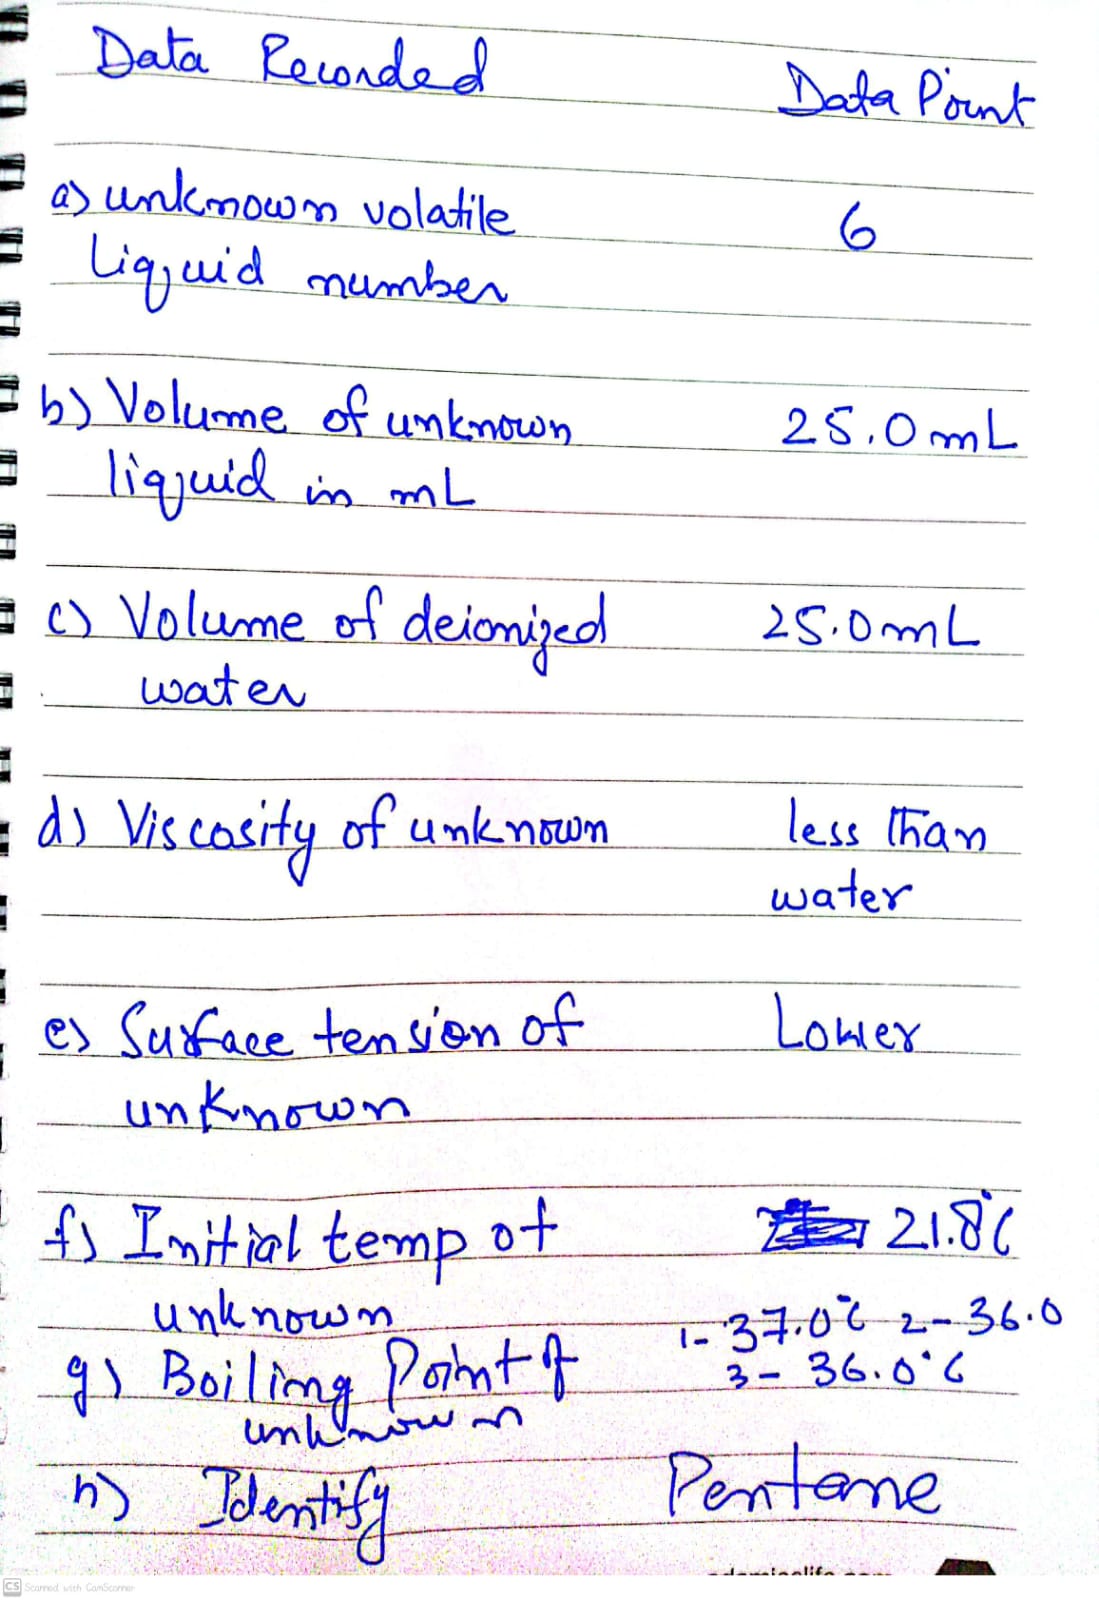 Data Recorded
Data Point
a) unknown volatile
6
Liquid number
b) Volume of unknown
25.0 mL
liquid in mL
c) Volume of deionized
25.0 mL
water
d) Viscosity of unknown
less than
water
e) Surface tension of
Lower
unknown
f) Initial temp of
21.8°C
unknown
1- 37.0°C 2- 36.0
g) Boiling Point of
3- 36.0°C
unknown
h) Identify
Pentane
CS Scanned with CamScanner